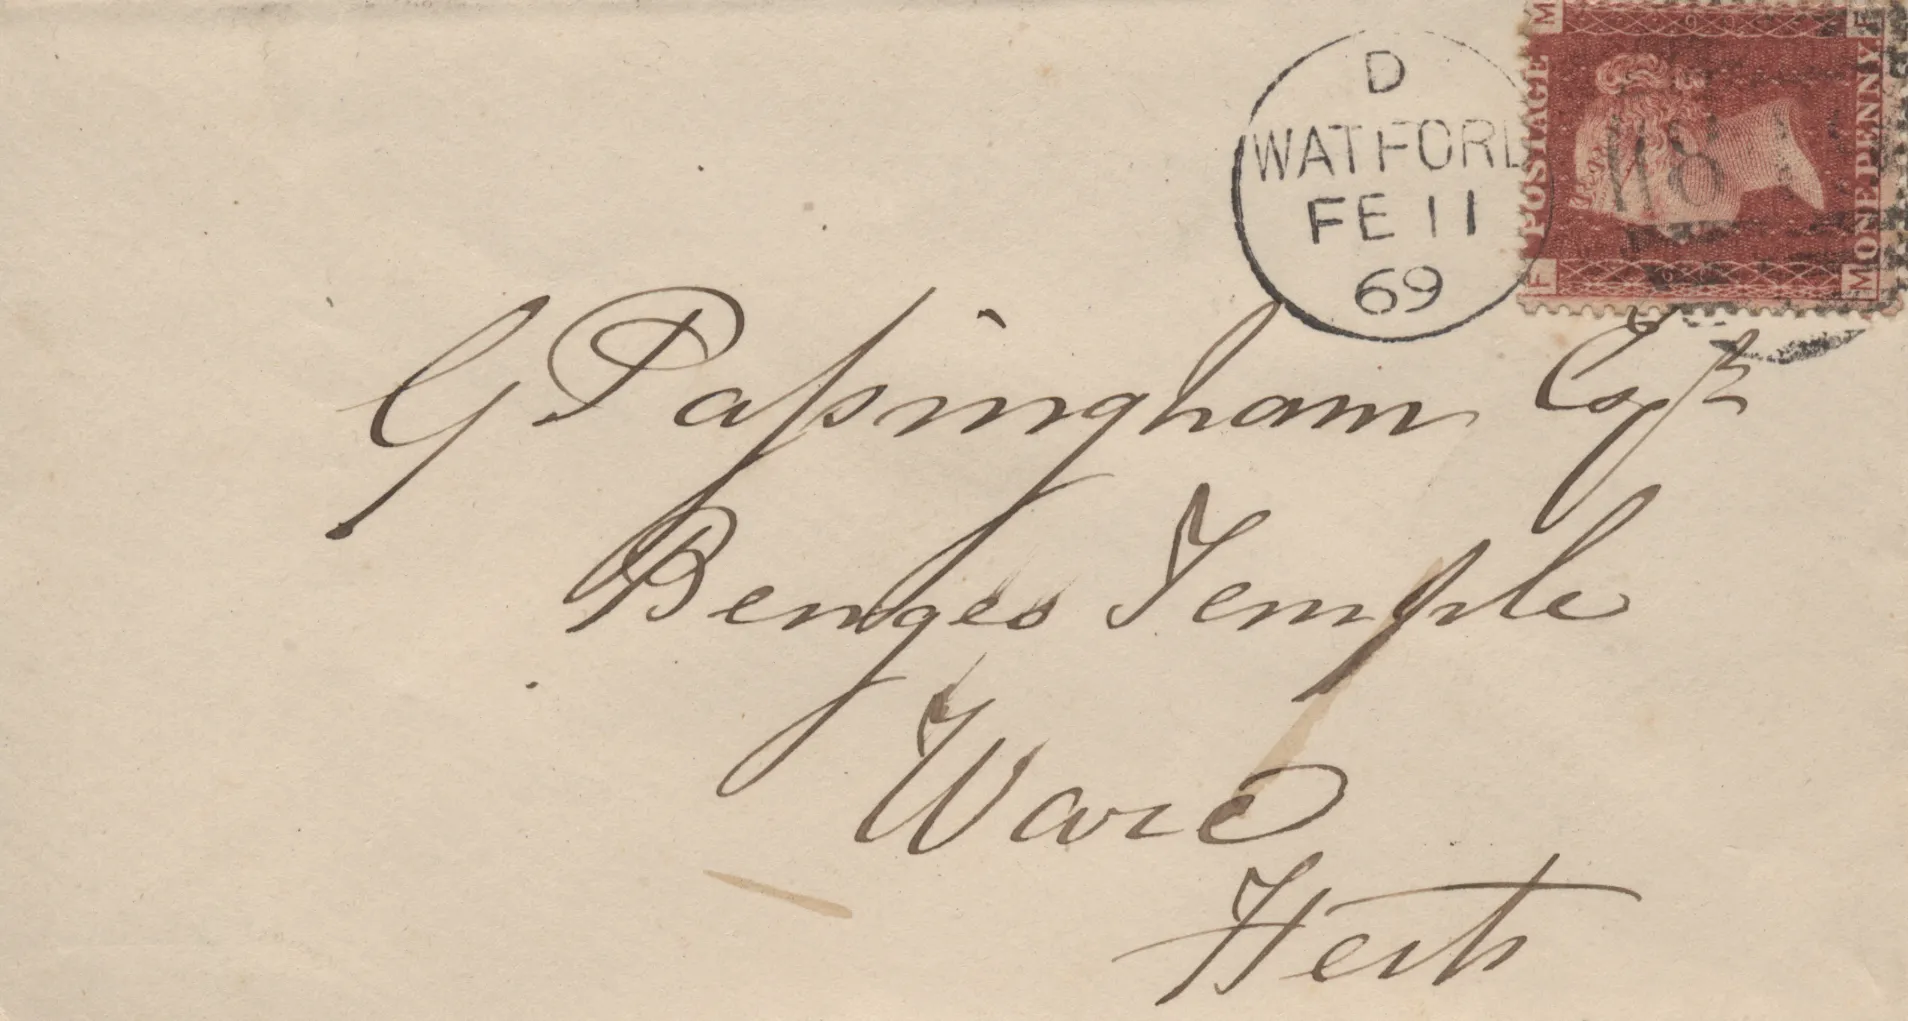 D
WATFORD
FE 11
69
POSTAGE
ONE PENNY
M F
F M
G Passingham Esqr
Benges Temple
Ware
Herts